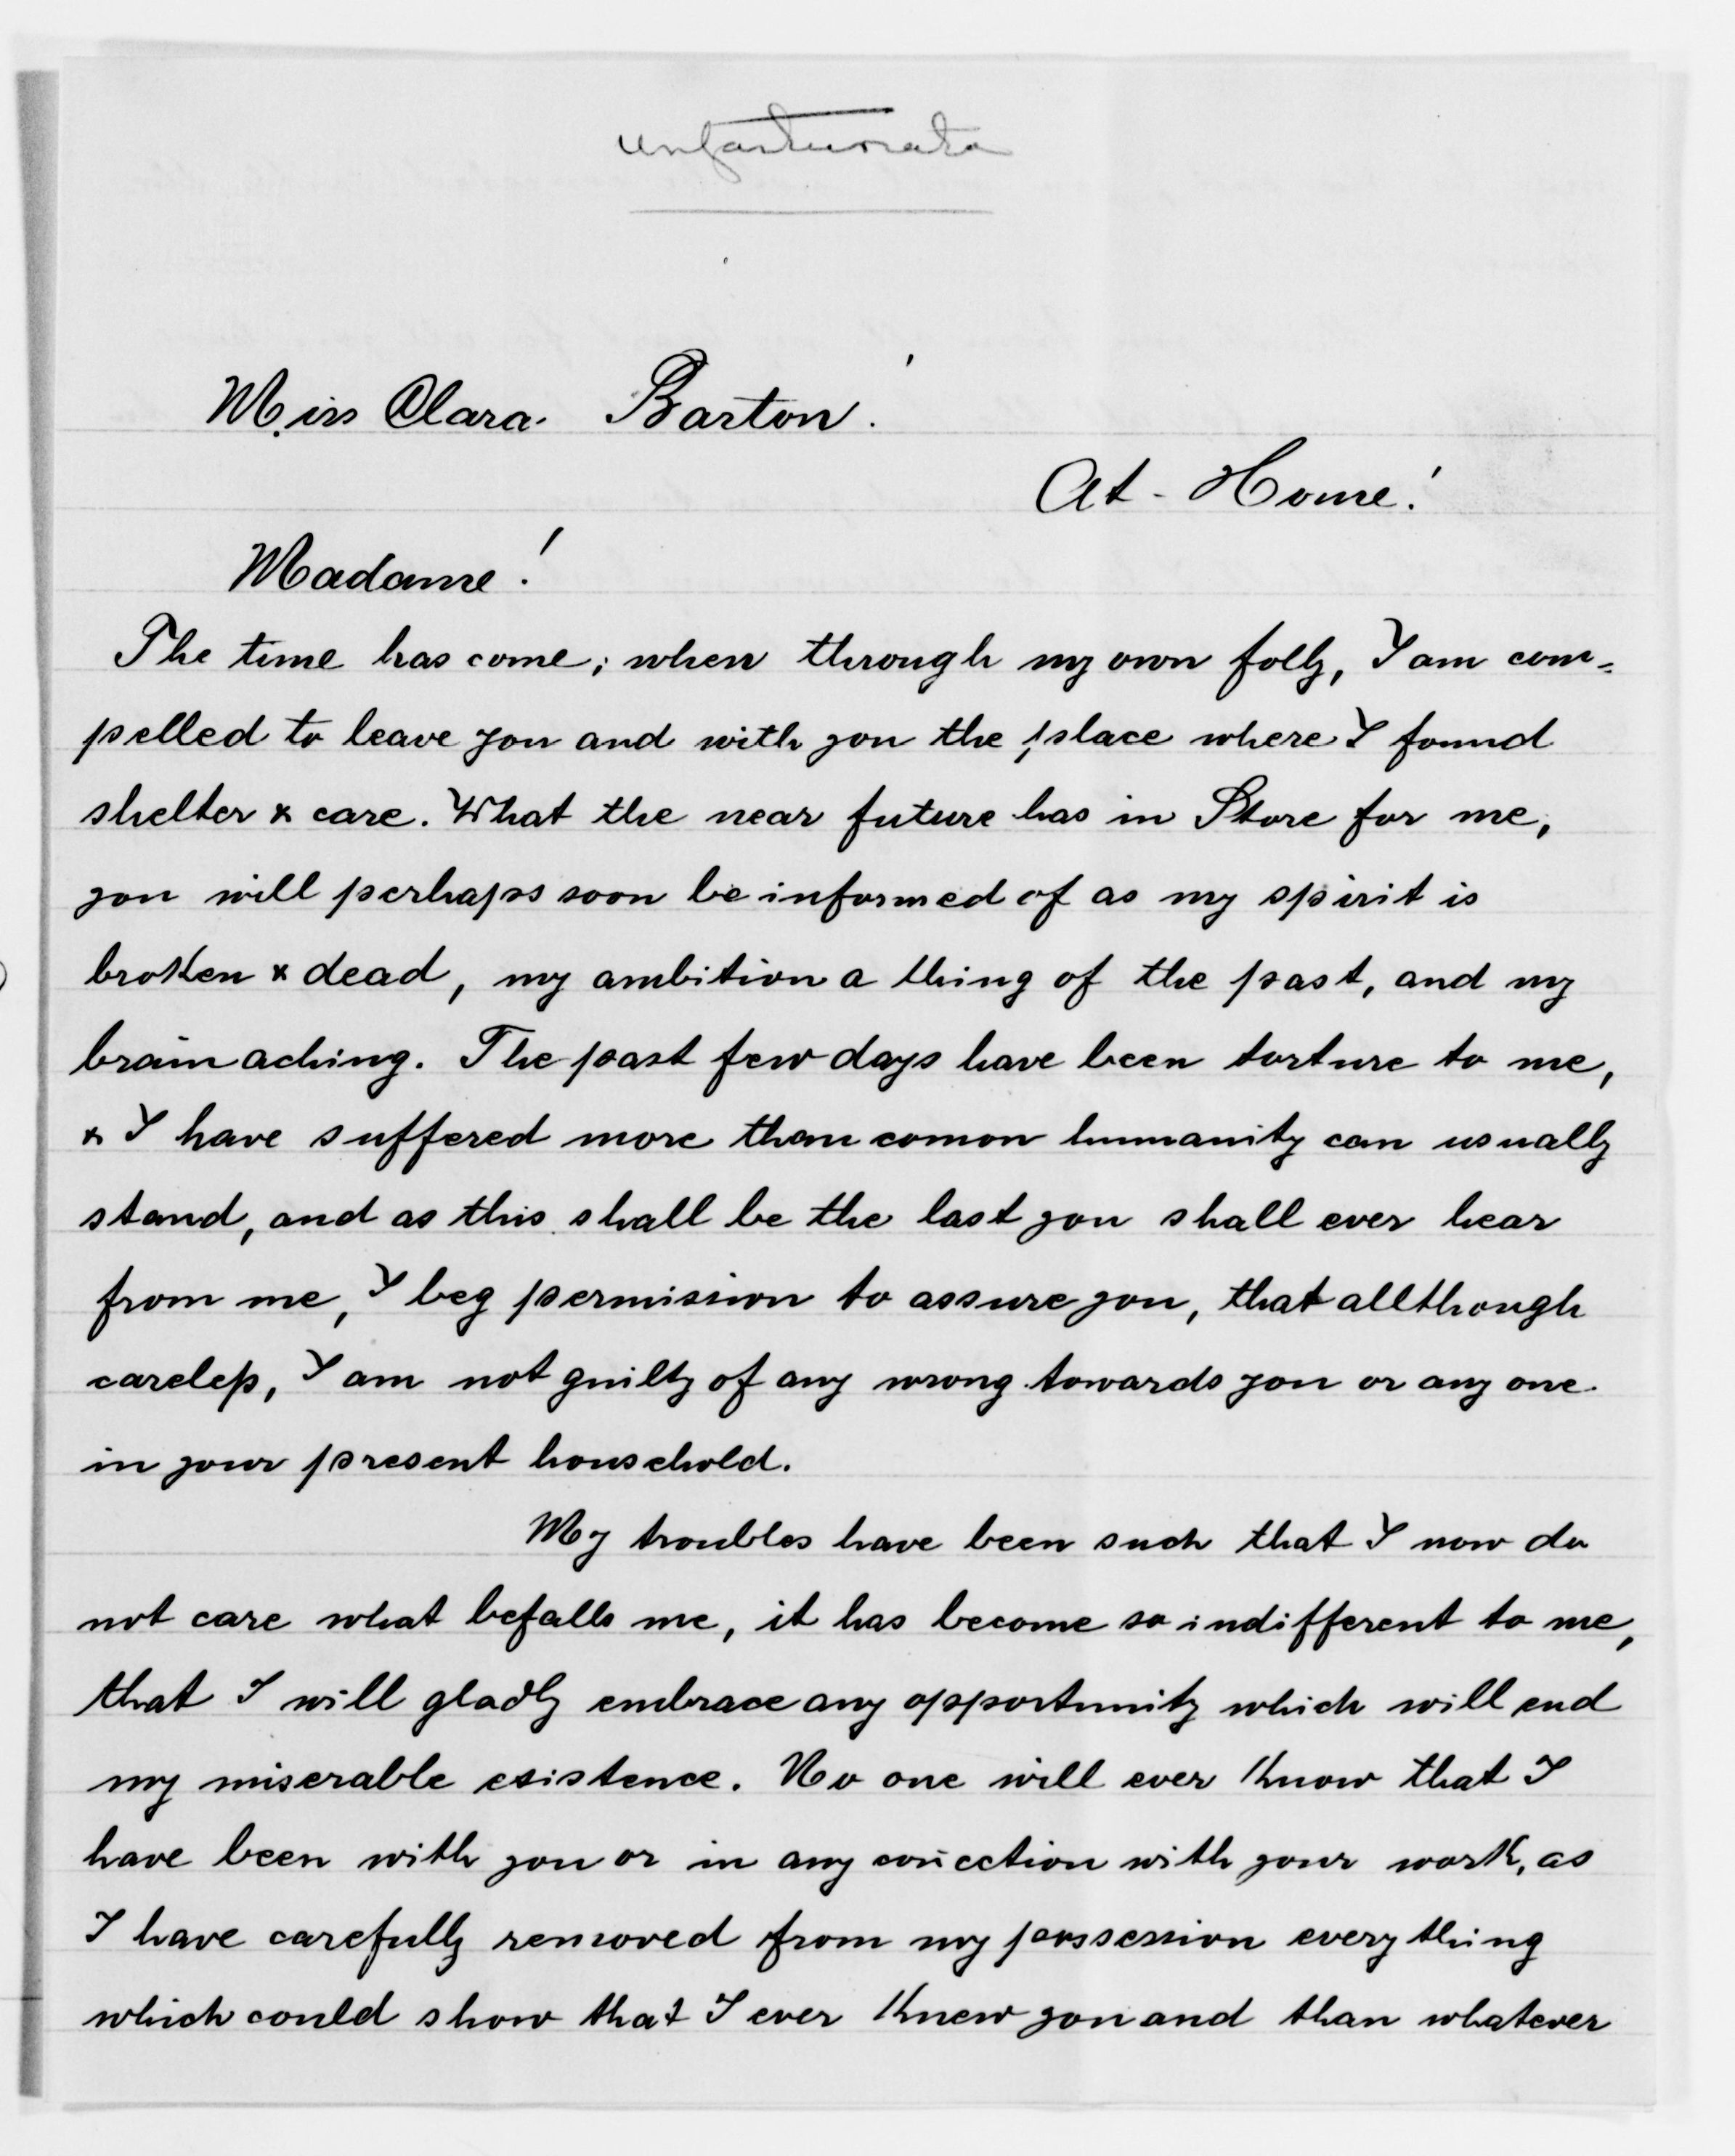 unfortunate
Miss Clara Barton!
At - Home!
Madame!
The time has come; when through my own folly, I am com-
pelled to leave you and with you the place where I found
shelter & care. What the near future has in Store for me,
you will perhaps soon be informed of as my spirit is
broken & dead, my ambition a thing of the past, and my
brain aching. The past few days have been torture to me,
& I have suffered more than comon humanity can usually
stand, and as this shall be the last you shall ever hear
from me, I beg permission to assure you, that allthough
careless, I am not guilty of any wrong towards you or any one
in your present household.
My troubles have been such that I now do
not care what befalls me, it has become so indifferent to me,
that I will gladly embrace any opportunity which will end
my miserable existence. No one will ever know that I
have been with you or in any coñection with your work, as
I have carefully removed from my possession every thing
which could show that I ever knew you and than whatever